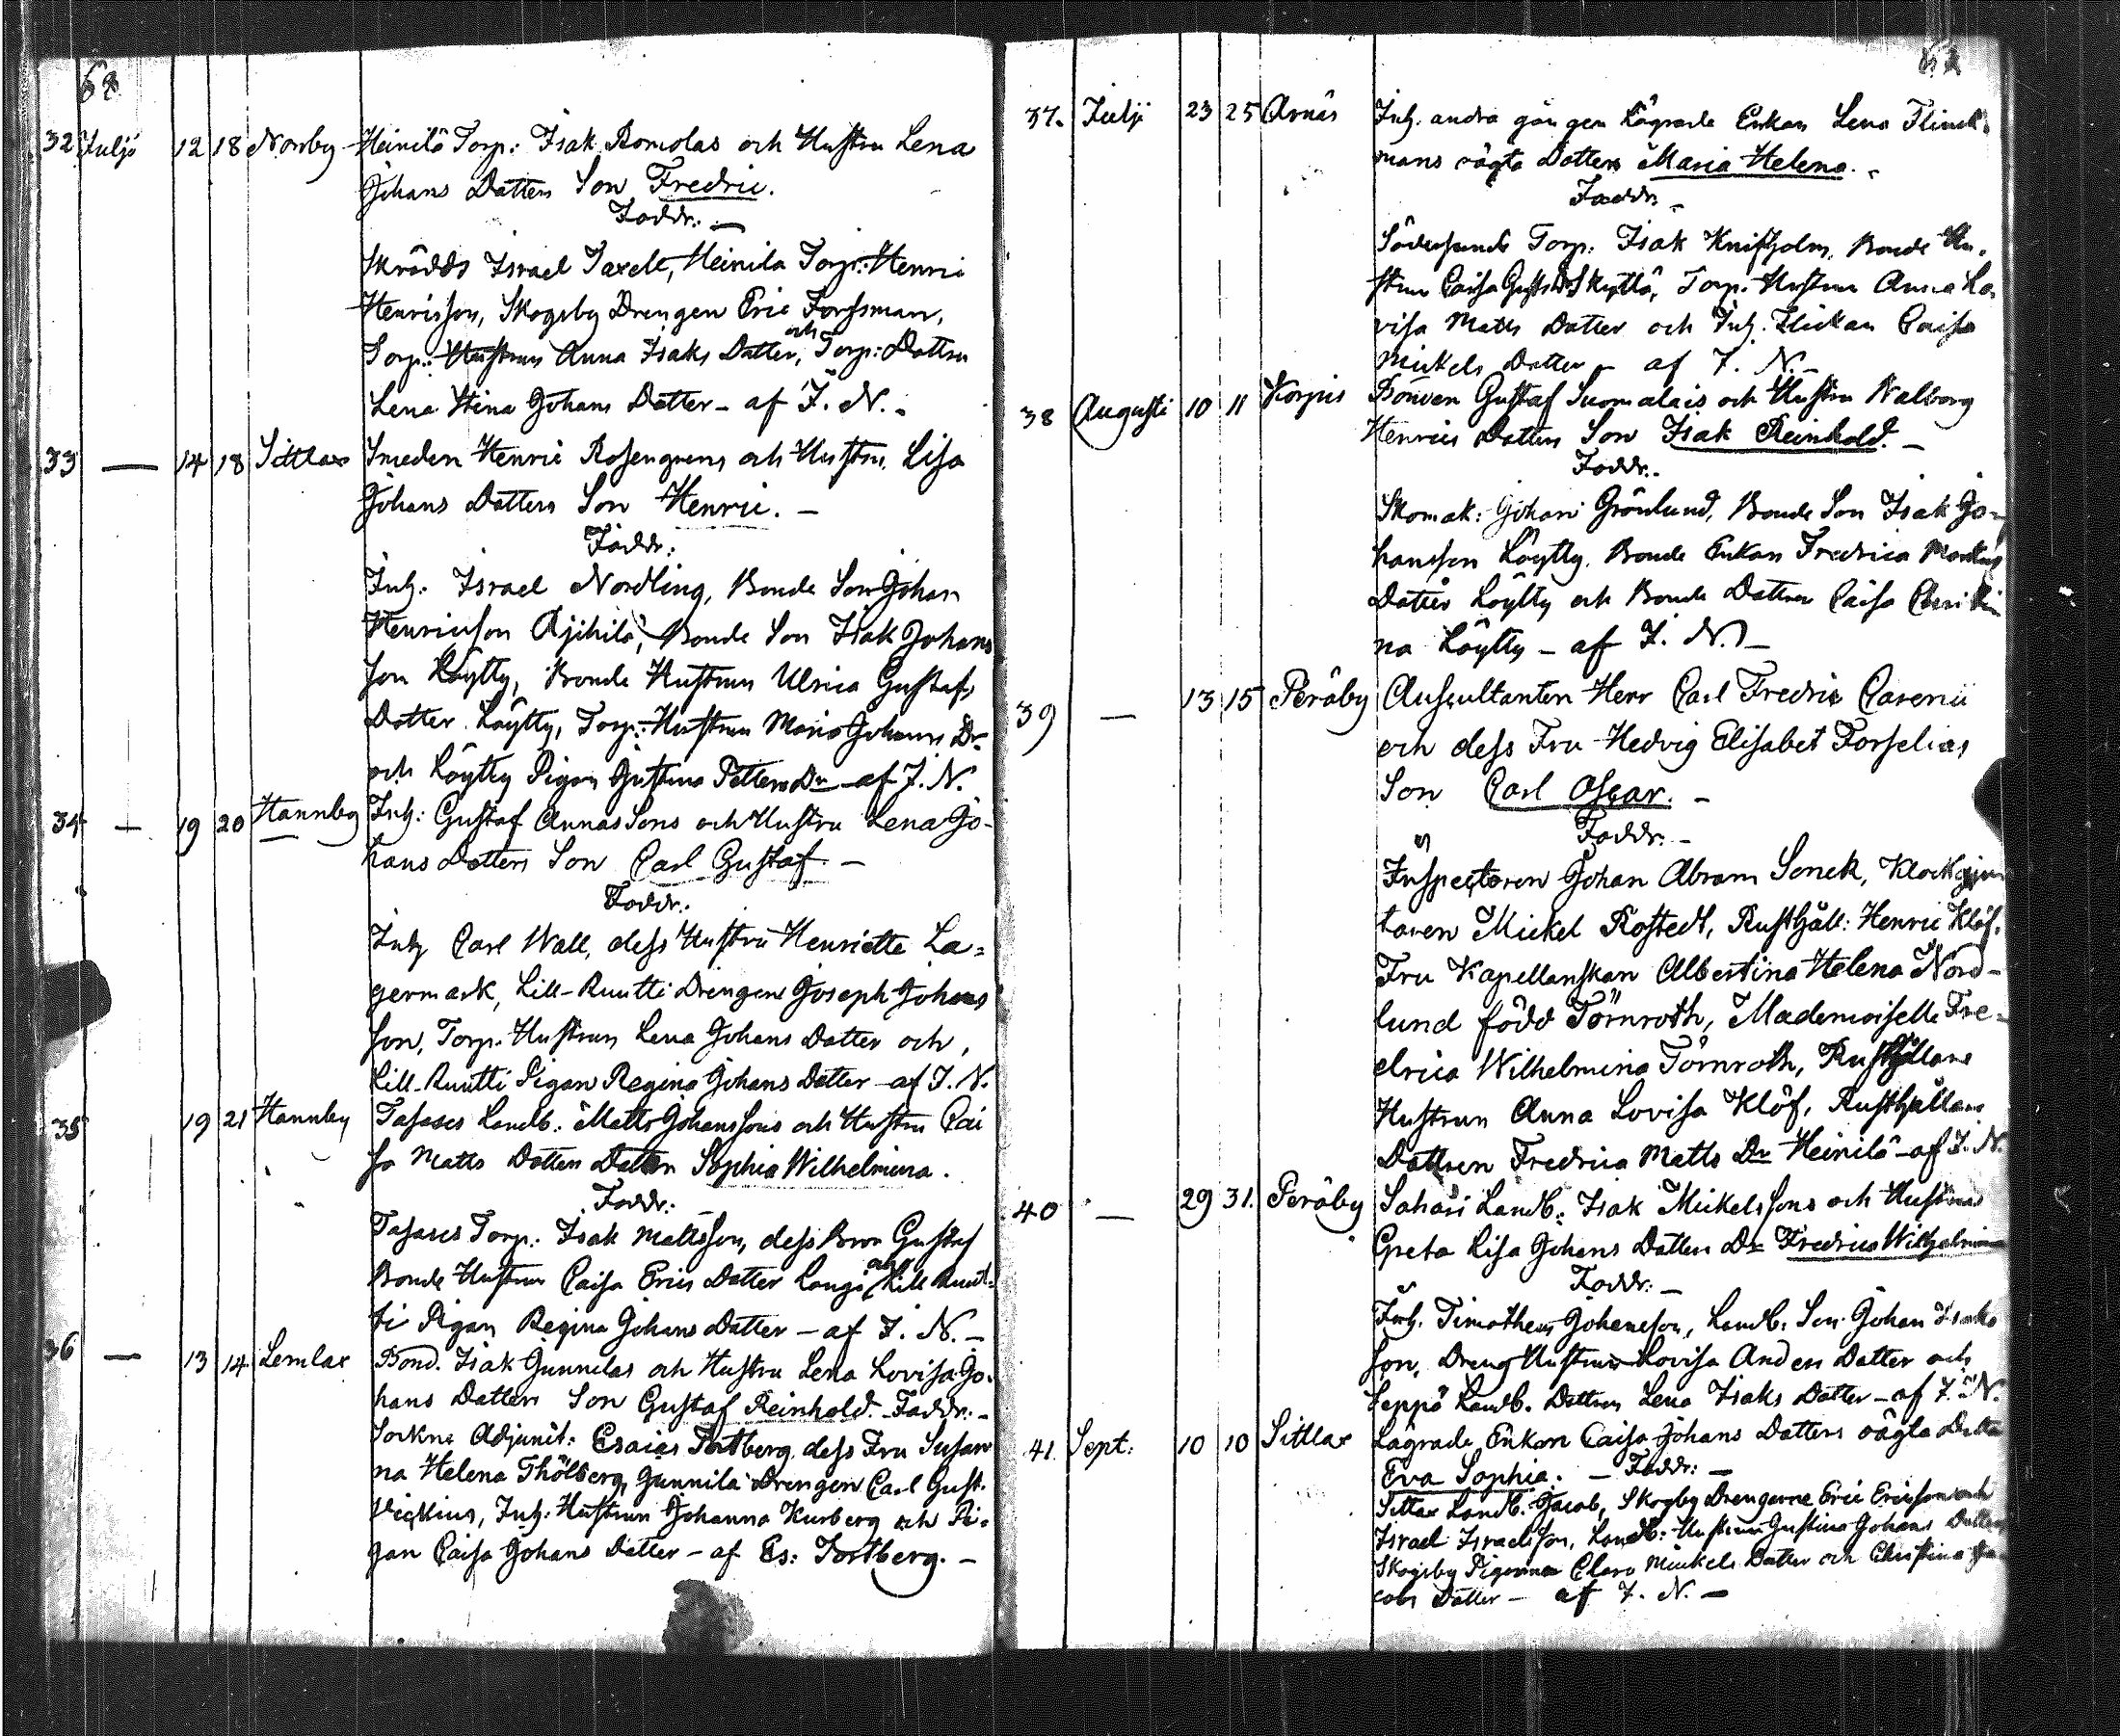 32 Julji 12 18 Norrby Heinilä Torp: Isak Romolas och Hustru Lena
Johans Datters Son Fredric.
Faddr: —
Skrädd: Israel Taxell, Heinila Torp: Henric
Henricsson, Skogsby Drengen Eric Forssman,
Torp: Hustrun Anna Isaks Datter, och Torp: Dattren
Lena Stina Johans Datter – af J. N. –
33 — 14 18 Sittlax Smeden Henric Rosengrens och Hustru Lisa
Johans Datters Son Henric. –
Faddr:
Inh: Israel Nordling, Bonde Son Johan
Henricsson Äijihilä, Bonde Son Isak Johans
son Löytty, Bonde Hustrun Ulrica Gustafs
Datter Löytty, Torp: Hustrun Maria Johans Dr
och Löytty Pigan Justina Petters Dr – af J. N.
34 — 19 20 Hannby Inh: Gustaf Annassons och Hustru Lena Jo-
hans Datters Son Carl Gustaf –
Faddr:
Inh Carl Wall, dess Hustru Henriette La=
germark, Lill-Ruutti Drengen Joseph Johans
son, Torp. Hustrun Lena Johans Datter och
Lill-Ruutti Pigan Regina Johans Datter – af J. N.
35 19 21 Hannby Tasases Landb: Matts Johanssons och Hustru Cai
sa Matts Datters Datter Sophia Wilhelmina.
Faddr:
Tasases Torp: Isak Mattsson, dess Bror Gustaf
Bonde Hustrun Caisa Erics Datter Langi och Lill Ruut=
ti Pigan Regina Johans Datter – af J. N. –
36 — 13 14 Lemlax Bond. Isak Gunnilas och Hustru Lena Lovisa Jo=
hans Datters Son Gustaf Reinhold. Faddr: –
Sockne Adjunct: Esaias Tortberg, dess Fru Susan
na Helena Thölberg, Gunnila Drengen Carl Gust.
Inh: Hustrun Johanna Kurberg och Pi=
gan Caisa Johans Datter – af Es: Tortberg. –
37. Julji 23 25 Arnäs Inh. andra gången Lägrade Enkan Lena Flinck=
mans oägta Datter Maria Helena. –
Faddr. –
Södersunds Torp: Isak Knifholm, Bonde Hu=
strun Caisa Gusts Dr Skyttä, Torp. Hustrun Anna Lo=
visa Matts Datter och Inh. Flickan Caisa
Mickels Datter – af J. N. –
38 Augusti 10 11 Korpis Bonden Gustaf Suomalais och Hustru Walborg
Henrics Datters Son Isak Reinhold. –
Faddr.
Skomak: Johan Grönlund, Bonde Son Isak Jo=
hansson Löytty, Bonde Enkan Fredrica
Datter Löytty och Bonde Dattren Caisa Christi
na Löytty – af J. N. –
39 — 13 15 Peräby Auscultanten Herr Carl Fredric Carenii
och dess Fru Hedvig Elisabet Forselias
Son Carl Oscar. –
Faddr. –
Inspectoren Johan Abram Sonck, Klockgju
taren Mickel Rostedt, Rusthåll: Henric Klöf,
Fru Kapellanskan Albertina Helena Nord-
lund född Törnroth, Mademoiselle Fre=
drica Wilhelmina Törnroth, Rusthållare
Hustrun Anna Lovisa Klöf, Rusthållare
Dattren Fredrica Matts Dr Heinilä – af J. N.
40 — 29 31. Peräby Sahari Landb: Isak Mickelssons och Hustrus
Greta Lisa Johans Datters Dr Fredrica Wilhelmina
Faddr: –
Inh. Timotheus Johansson, Landb: Son Johan Isaks
son, Dreng Hustrun Lovisa Anders Datter och
Seppä Landb. Dattren Lena Isaks Datter – af J. N.
41. Sept: 10 10 Sittlax Lägrade Enkan Caisa Johans Datters oägta Datter
Eva Sophia. – Faddr: –
Sittlax Landb. Jacob, Skogby Drengarne Eric Ericsson och
Israel Israelsson, Landb: Hustrun Justina Johans Datter
Skogsby Pigorna Clara Mickels Datter och Christina Ja
cobs Datter – af J. N. –